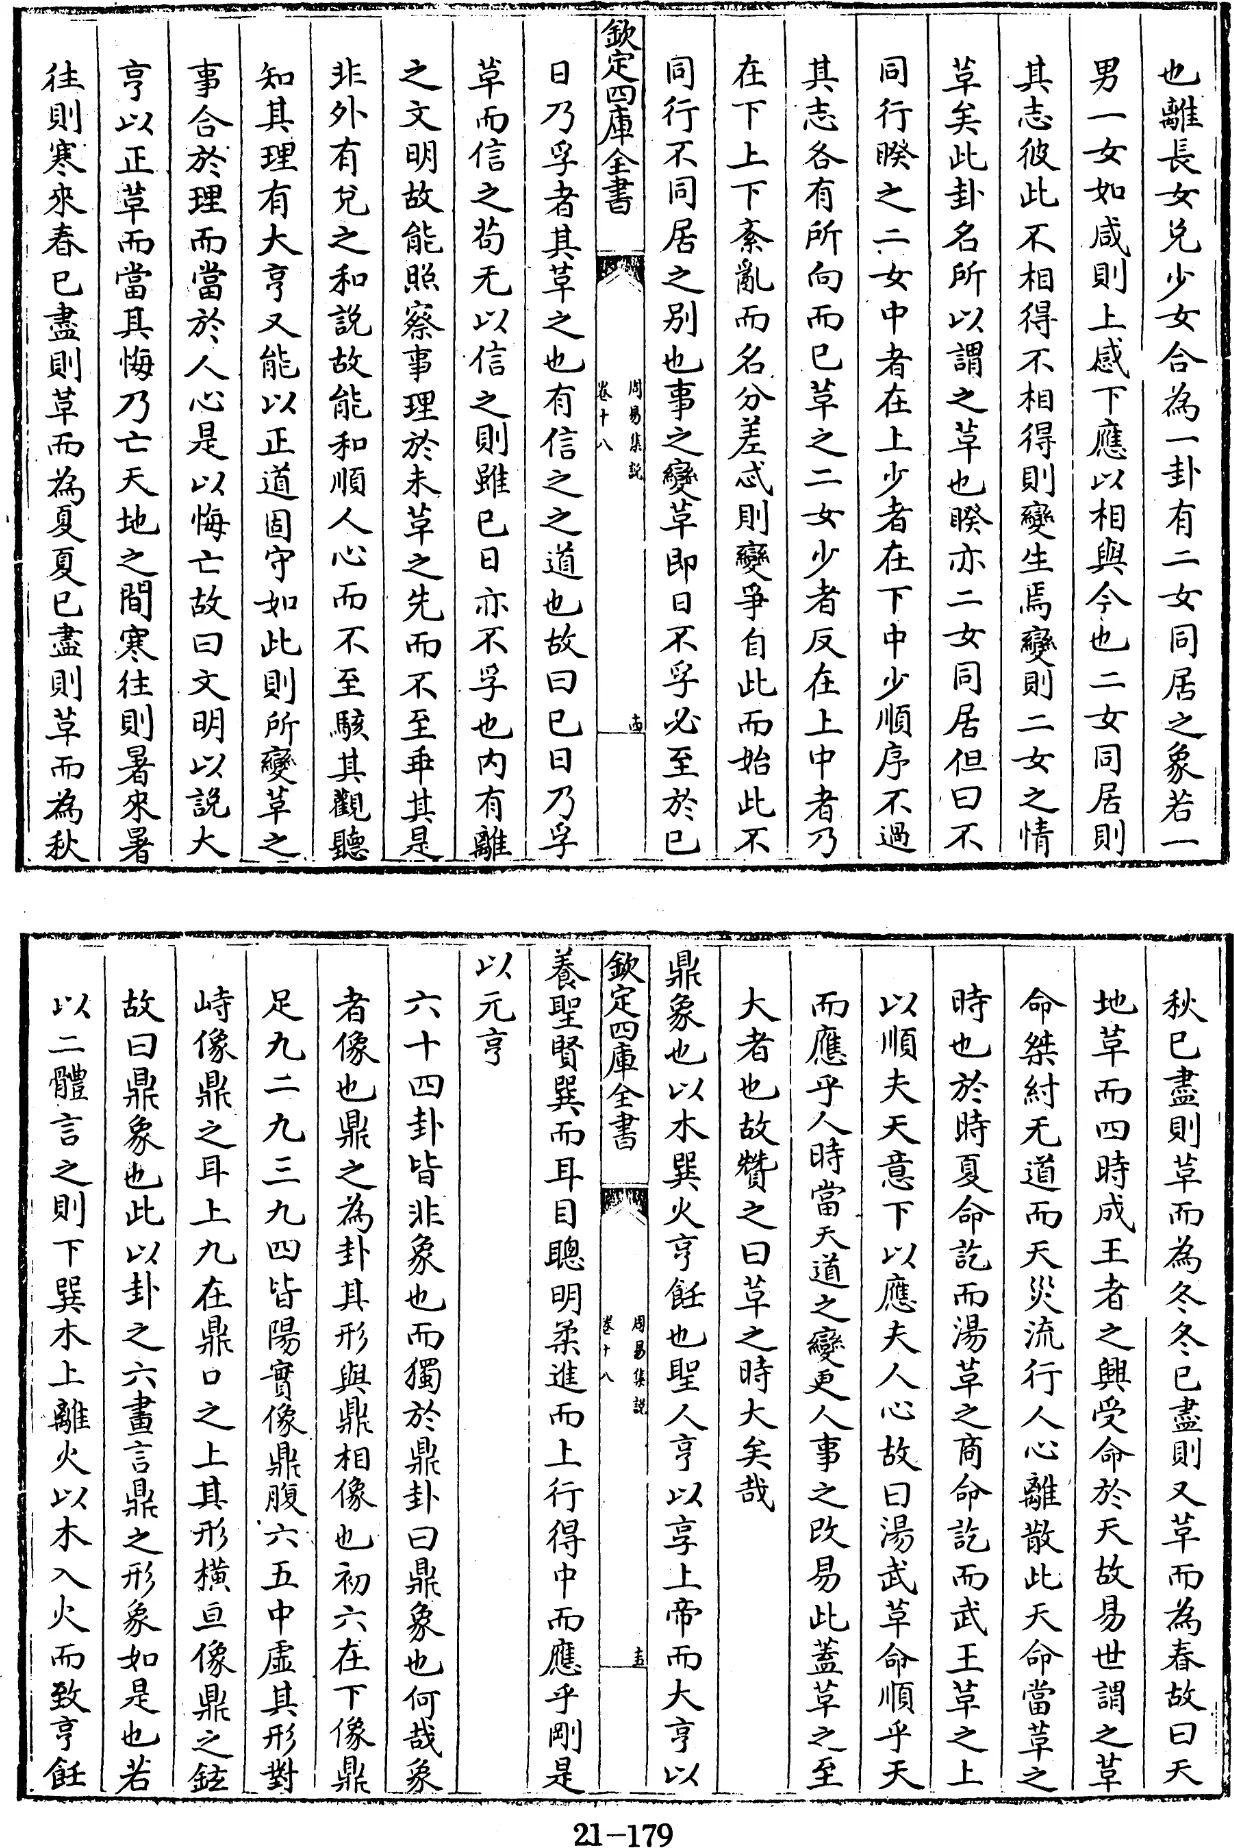 也離長女兌少女合為一卦有二女同居之象若一
男一女如咸則上感下應以相與今也二女同居則
其志彼此不相得不相得則變生焉變則二女之情
革矣此卦名所以謂之革也睽亦二女同居但曰不
同行睽之二女中者在上少者在下中少順序不過
其志各有所向而已革之二女少者反在上中者乃
在下上下紊亂而名分差忒則變爭自此而始此不
同行不同居之别也事之變革即日不孚必至於已
欽定四庫全書
周易集説
卷十八
日乃孚者其革之也有信之之道也故曰已日乃孚
革而信之茍无以信之則雖已日亦不孚也内有離
之文明故能照察事理於未革之先而不至乖其是
非外有兌之和説故能和順人心而不至駭其觀聽
知其理有大亨又能以正道固守如此則所變革之
事合於理而當於人心是以悔亡故曰文明以説大
亨以正革而當其悔乃亡天地之間寒往則暑來暑
往則寒來春已盡則革而為夏夏已盡則革而為秋
秋已盡則革而為冬冬已盡則又革而為春故曰天
地革而四時成王者之興受命於天故易世謂之革
命桀紂无道而天災流行人心離散此天命當革之
時也於時夏命訖而湯革之商命訖而武王革之上
以順夫天意下以應夫人心故曰湯武革命順乎天
而應乎人時當天道之變更人事之改易此蓋革之至
大者也故贊之曰革之時大矣哉
鼎象也以木巽火亨飪也聖人亨以享上帝而大亨以
欽定四庫全書
周易集説
卷十八
養聖賢巽而耳目聰明柔進而上行得中而應乎剛是
以元亨
六十四卦皆非象也而獨於鼎卦曰鼎象也何哉象
者像也鼎之為卦其形與鼎相像也初六在下像鼎
足九二九三九四皆陽實像鼎腹六五中虛其形對
峙像鼎之耳上九在鼎口之上其形横亘像鼎之鉉
故曰鼎象也此以卦之六畫言鼎之形象如是也若
以二體言之則下巽木上離火以木入火而致亨飪
21-179